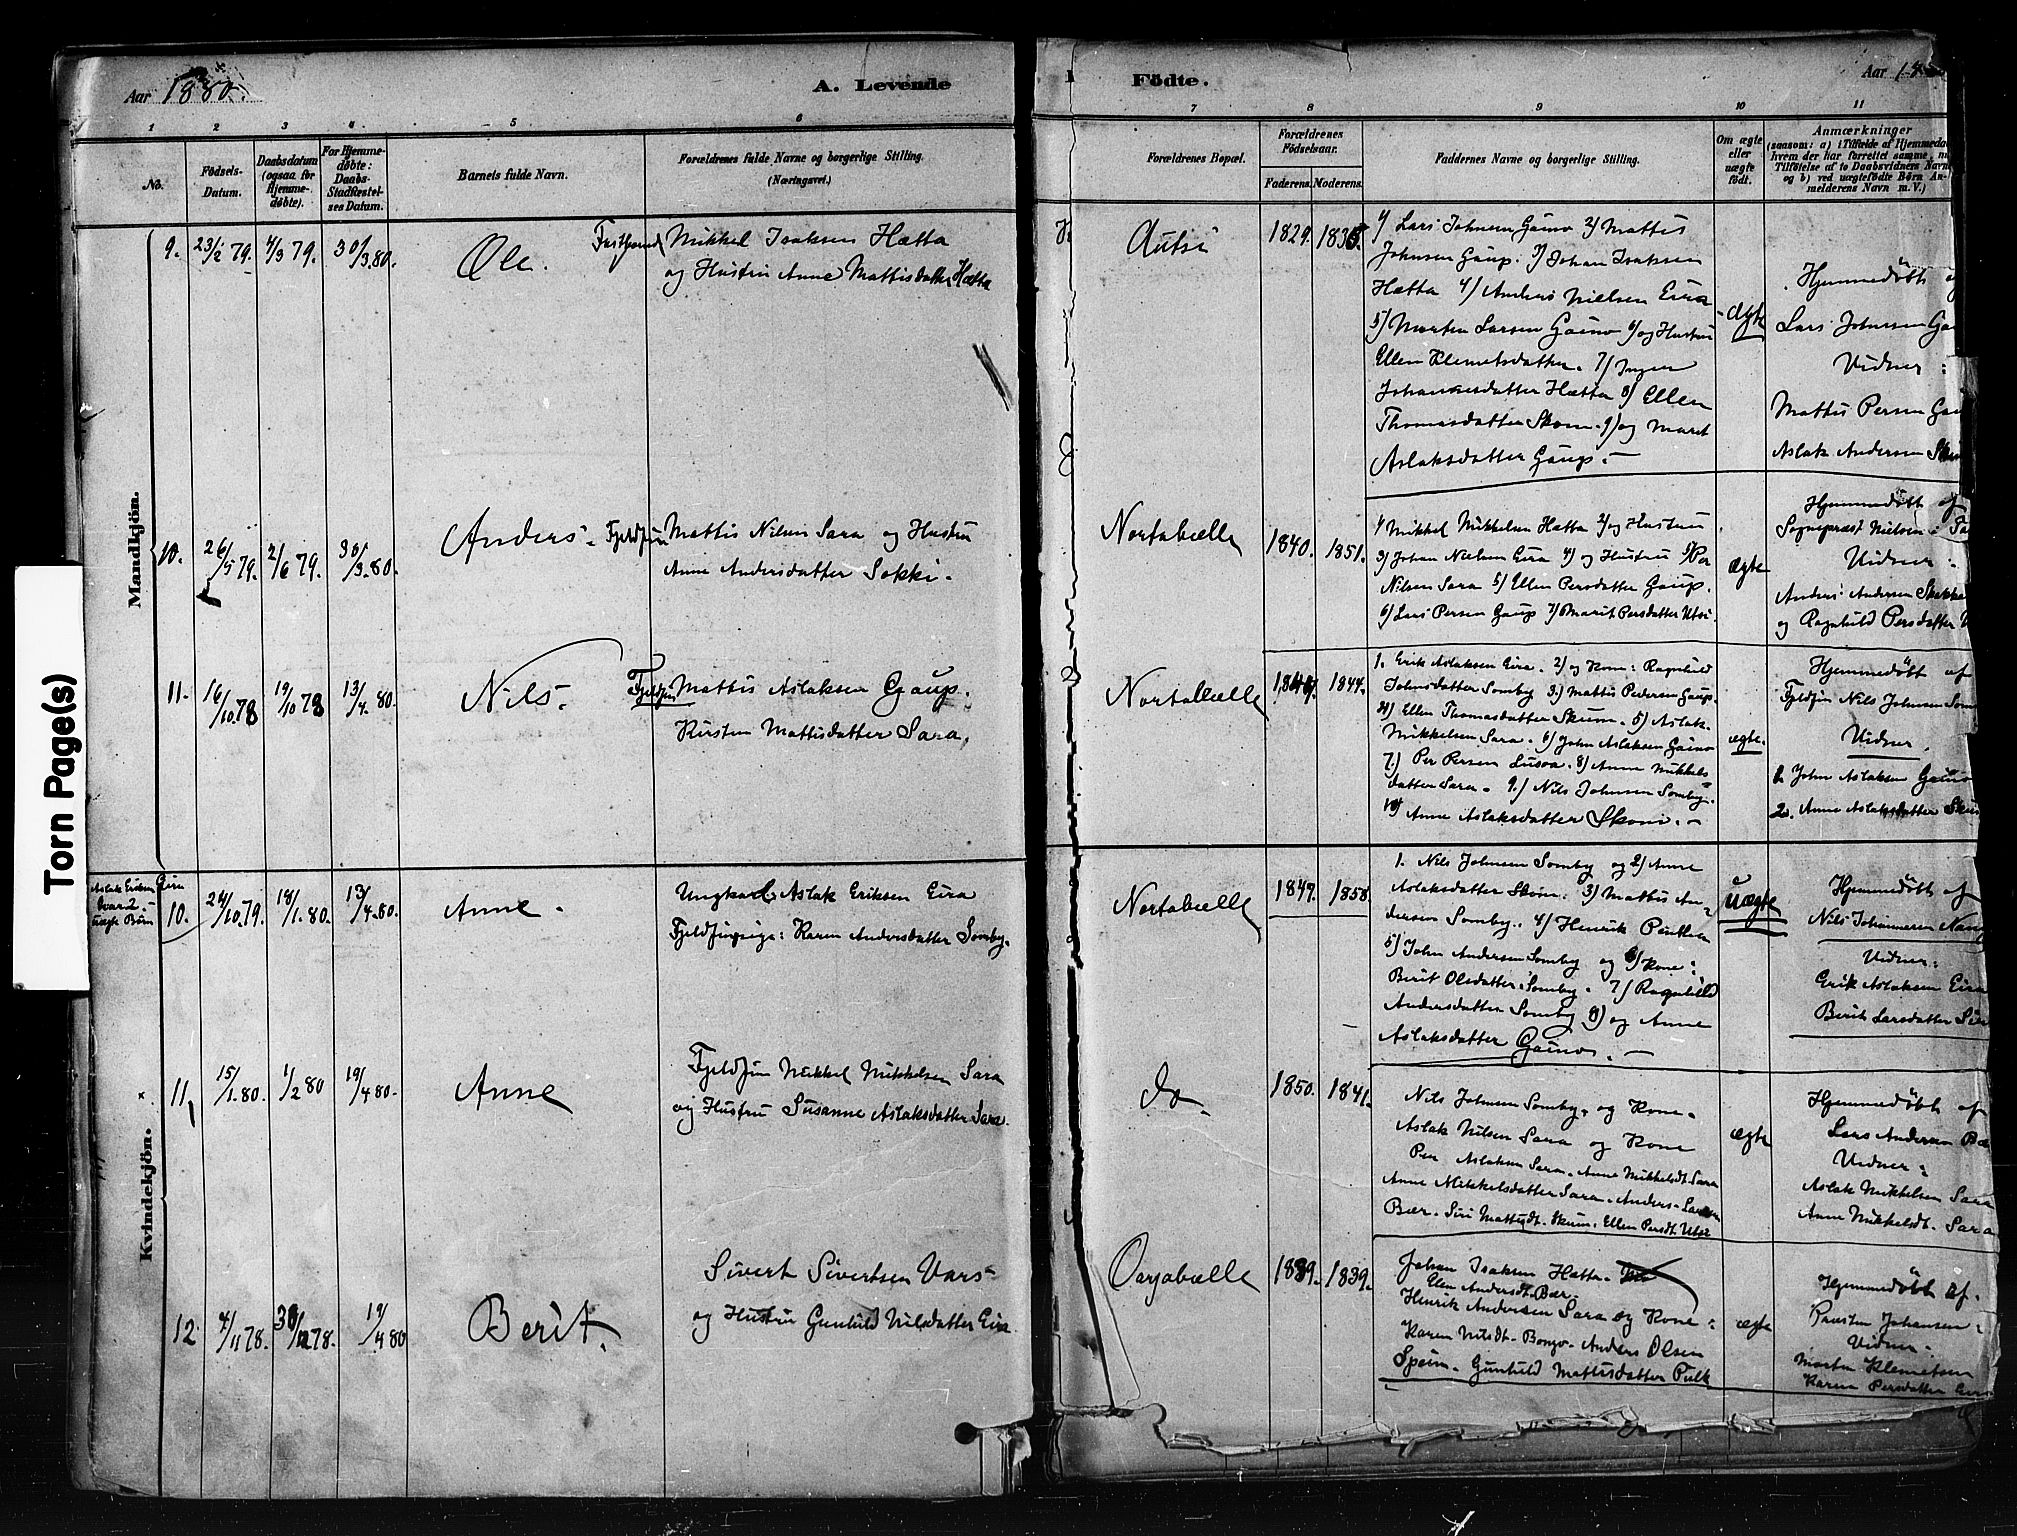 Aar 1880.
A. Levende
1 2 3 4 5 6
No.
Födsels-
Datum.
Daabsdatum
(ogsaa for
Hjemme-
döbte).
For Hjemme-
döbte:
Daabs-
Stadfæstel-
ses Datum.
Barnets fulde Navn.
Forældrenes fulde Navne og borgerlige Stilling.
(Næringsvei.)
Mandkjön.
9. 23/2 79. 4/3 79. 30/3.80.
Ole.
Mikkel Isaksen Hætta
og Hustru Anne Mattisdatter Hætta
10. 26/5 79. 2/6 79. 30/3.80.
Anders.
Fjeldfin
Mattis Nilsen Sara og Hustru
Anne Andersdatter Sokki.
11. 16/10.78 19/10 78 13/4.80.
Nils.
Fjeldfin
Mattis Aslaksen Gaup.
Kirsten Mattisdatter Sara,
Aslak Eriksen Eira
Uægte Børn
Kvindekjön.
10. 24/10.79. 18/1.80. 13/4.80.
Anne.
Ungkarl Aslak Eriksen Eira
Fjeldfinpige: Karen Andersdatter Somby.
11, 15/1.80. 1/2 80 19/4 80.
Anne
Fjeldfin Mikkel Mikkelsen Sara
og Hustru Susanne Aslaksdatter Sara.
12 4/11 78. 30/12 78. 19/4 80
Berit.
Sivert Sivertsen Vars
og Hustru Gunhild Nilsdatter Eira.
Torn Page(s)
Födte.
Aar 18
7 8 9 10 11
Forældrenes Bopæl.
Forældrenes
Födselsaar.
Faderens. Moderens.
Faddernes Navne og borgerlige Stilling.
Om ægte
eller
uægte
födt.
Anmærkninger
(saasom: a) i Tilfælde af Hjemmedaa
hvem der har forrettet samme, m
Tilföielse af to Daabsvidners Navn
og b) ved uægtefödte Börn An-
melderens Navn m. V.)
Autsi
1829. 1835.
1) Lars Johnsen Gaino 2) Mattis
Johnsen Gaup. 3) Johan Isaksen
Hætta 4) Anders Nielsen Eira
5) Morten Larsen Gaino 6) og Hustru
Ellen Klemetsdatter. 7) Inger
Johannesdatter Hætta 8) Ellen
Thomasdatter Skum. 9) og Marit
Aslaksdatter Gaup.
ægte
Hjemmedöbt
Lars Johnsen Ga
Vidner:
Mattis Persen Gau
Aslak Andersen
Nortabælle
1840. 1851.
1) Mikkel Mikkelsen Hætta 2) og Hustru
3) Johan Nielsen Eira 4) og Hustru 5) Per
Nilsen Sara 5) Ellen Persdatter Gaup.
6) Lars Persen Gaup 7) Marit Persdatter Utsi.
ægte
Hjemmedöbt af
Sognepræst Nielsen
Vidner:
Anders Andersen
og Ragnhild Persdatter
Nortabælle
1844.
1. Erik Aslaksen Eira. 2) og Kone: Ragnhild
Johnsdatter Somby 3.) Mattis Pedersen Gaup.
4) Ellen Thomasdatter Skum. 5) Aslak
Mikkelsen Sara. 6) John Aslaksen Gaino
7.) Per Persen Lusoa. 8) Anne Mikkels-
datter Sara. 9.) Nils Johnsen Somby.
10) Anne Aslaksdatter Skum.
ægte.
Hjemmedöbt af
Fjeldfin Nils Johnsen Som
Vidner.
1. John Aslaksen Gaino
2. Anne Aslaksdatter
Nortabælle
1847. 1858.
1. Nils Johnsen Somby og 2) Anne
Aslaksdatter Skum. 3) Mattis An-
dersen Somby. 4) Henrik
5) John Andersen Somby og 6) Kone:
Berit Olsdatter Somby. 7) Ragnhild
Andersdatter Somby 8) og Anne
Aslaksdatter Gaino.
Uægte
Hjemmedöbt af
Nils Johannesen
Vidner:
Erik Aslaksen Eira
Berit Larsdatter
do.
1850. 1841.
Nils Johnsen Somby. og Kone.
Aslak Nilsen Sara og Kone
Per Aslaksen Sara. Anne Mikkelsdt. Sara
Anne Mikkelsdatter Sara. Anders Larsen
Bær. Siri Mattisdt. Skum. Ellen Persdt. Utsi
ægte
Hjemmedöbt af
Lars Andersen Bær
Vidner:
Aslak Mikkelsen Sara
Anne Mikkelsdt. Sara
Oarjabælle
1839. 1839.
Johan Isaksen Hætta.
Elen Andersdt. Bær.
Henrik Andersen Sara og Kone:
Karen Nilsdt. Bongo. Anders Olsen
Spein. Gunhild Mattisdatter Pulk
ægte
Hjemmedöbt af.
Johansen
Vidner:
Morten Klemetsen
Karen Persdatter